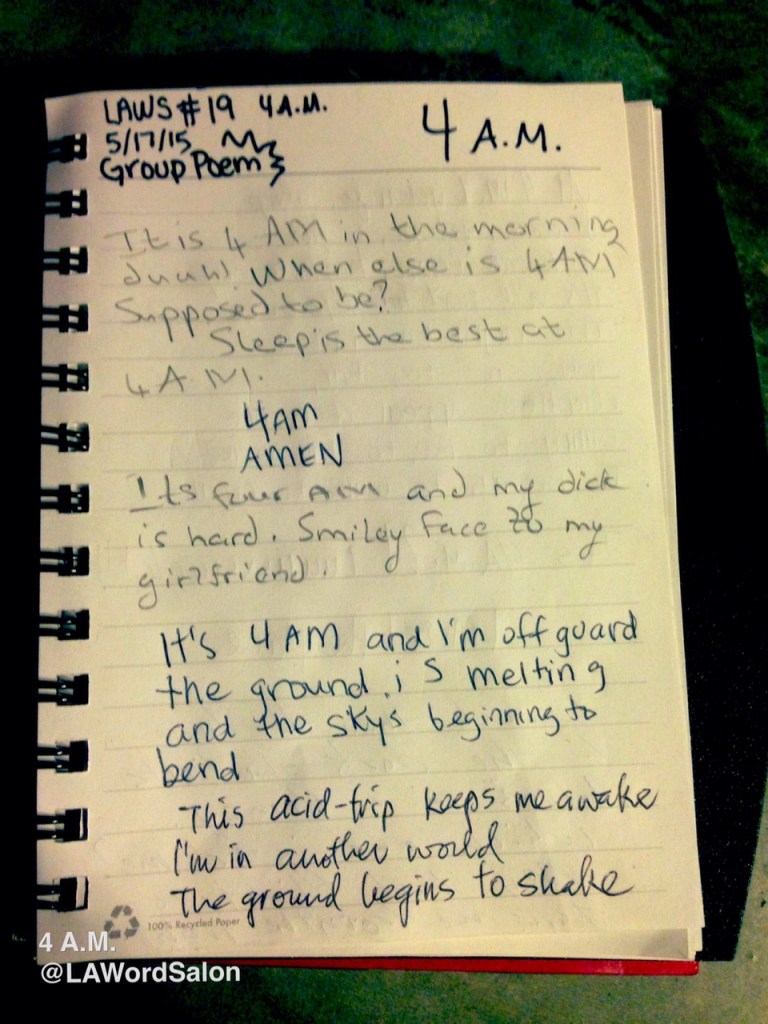 LAWS #19 4 A.M.
5/17/15
Group Poem
4 A.M.
It is 4 AM in the morning
duuh! When else is 4AM
Supposed to be?
Sleep is the best at
4 A M.
4AM
AMEN
Its four AM and my dick
is hard. Smiley face to my
girlfriend.
It's 4 AM and I'm off guard
the ground is melting
and the skys beginning to
bend
This acid-trip keeps me awake
I'm in another world
The ground begins to shake
100% Recycled Paper
4 A.M.
@LAWordSalon